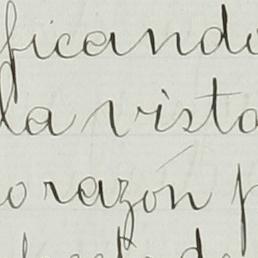 ficando
la vista
orazón p